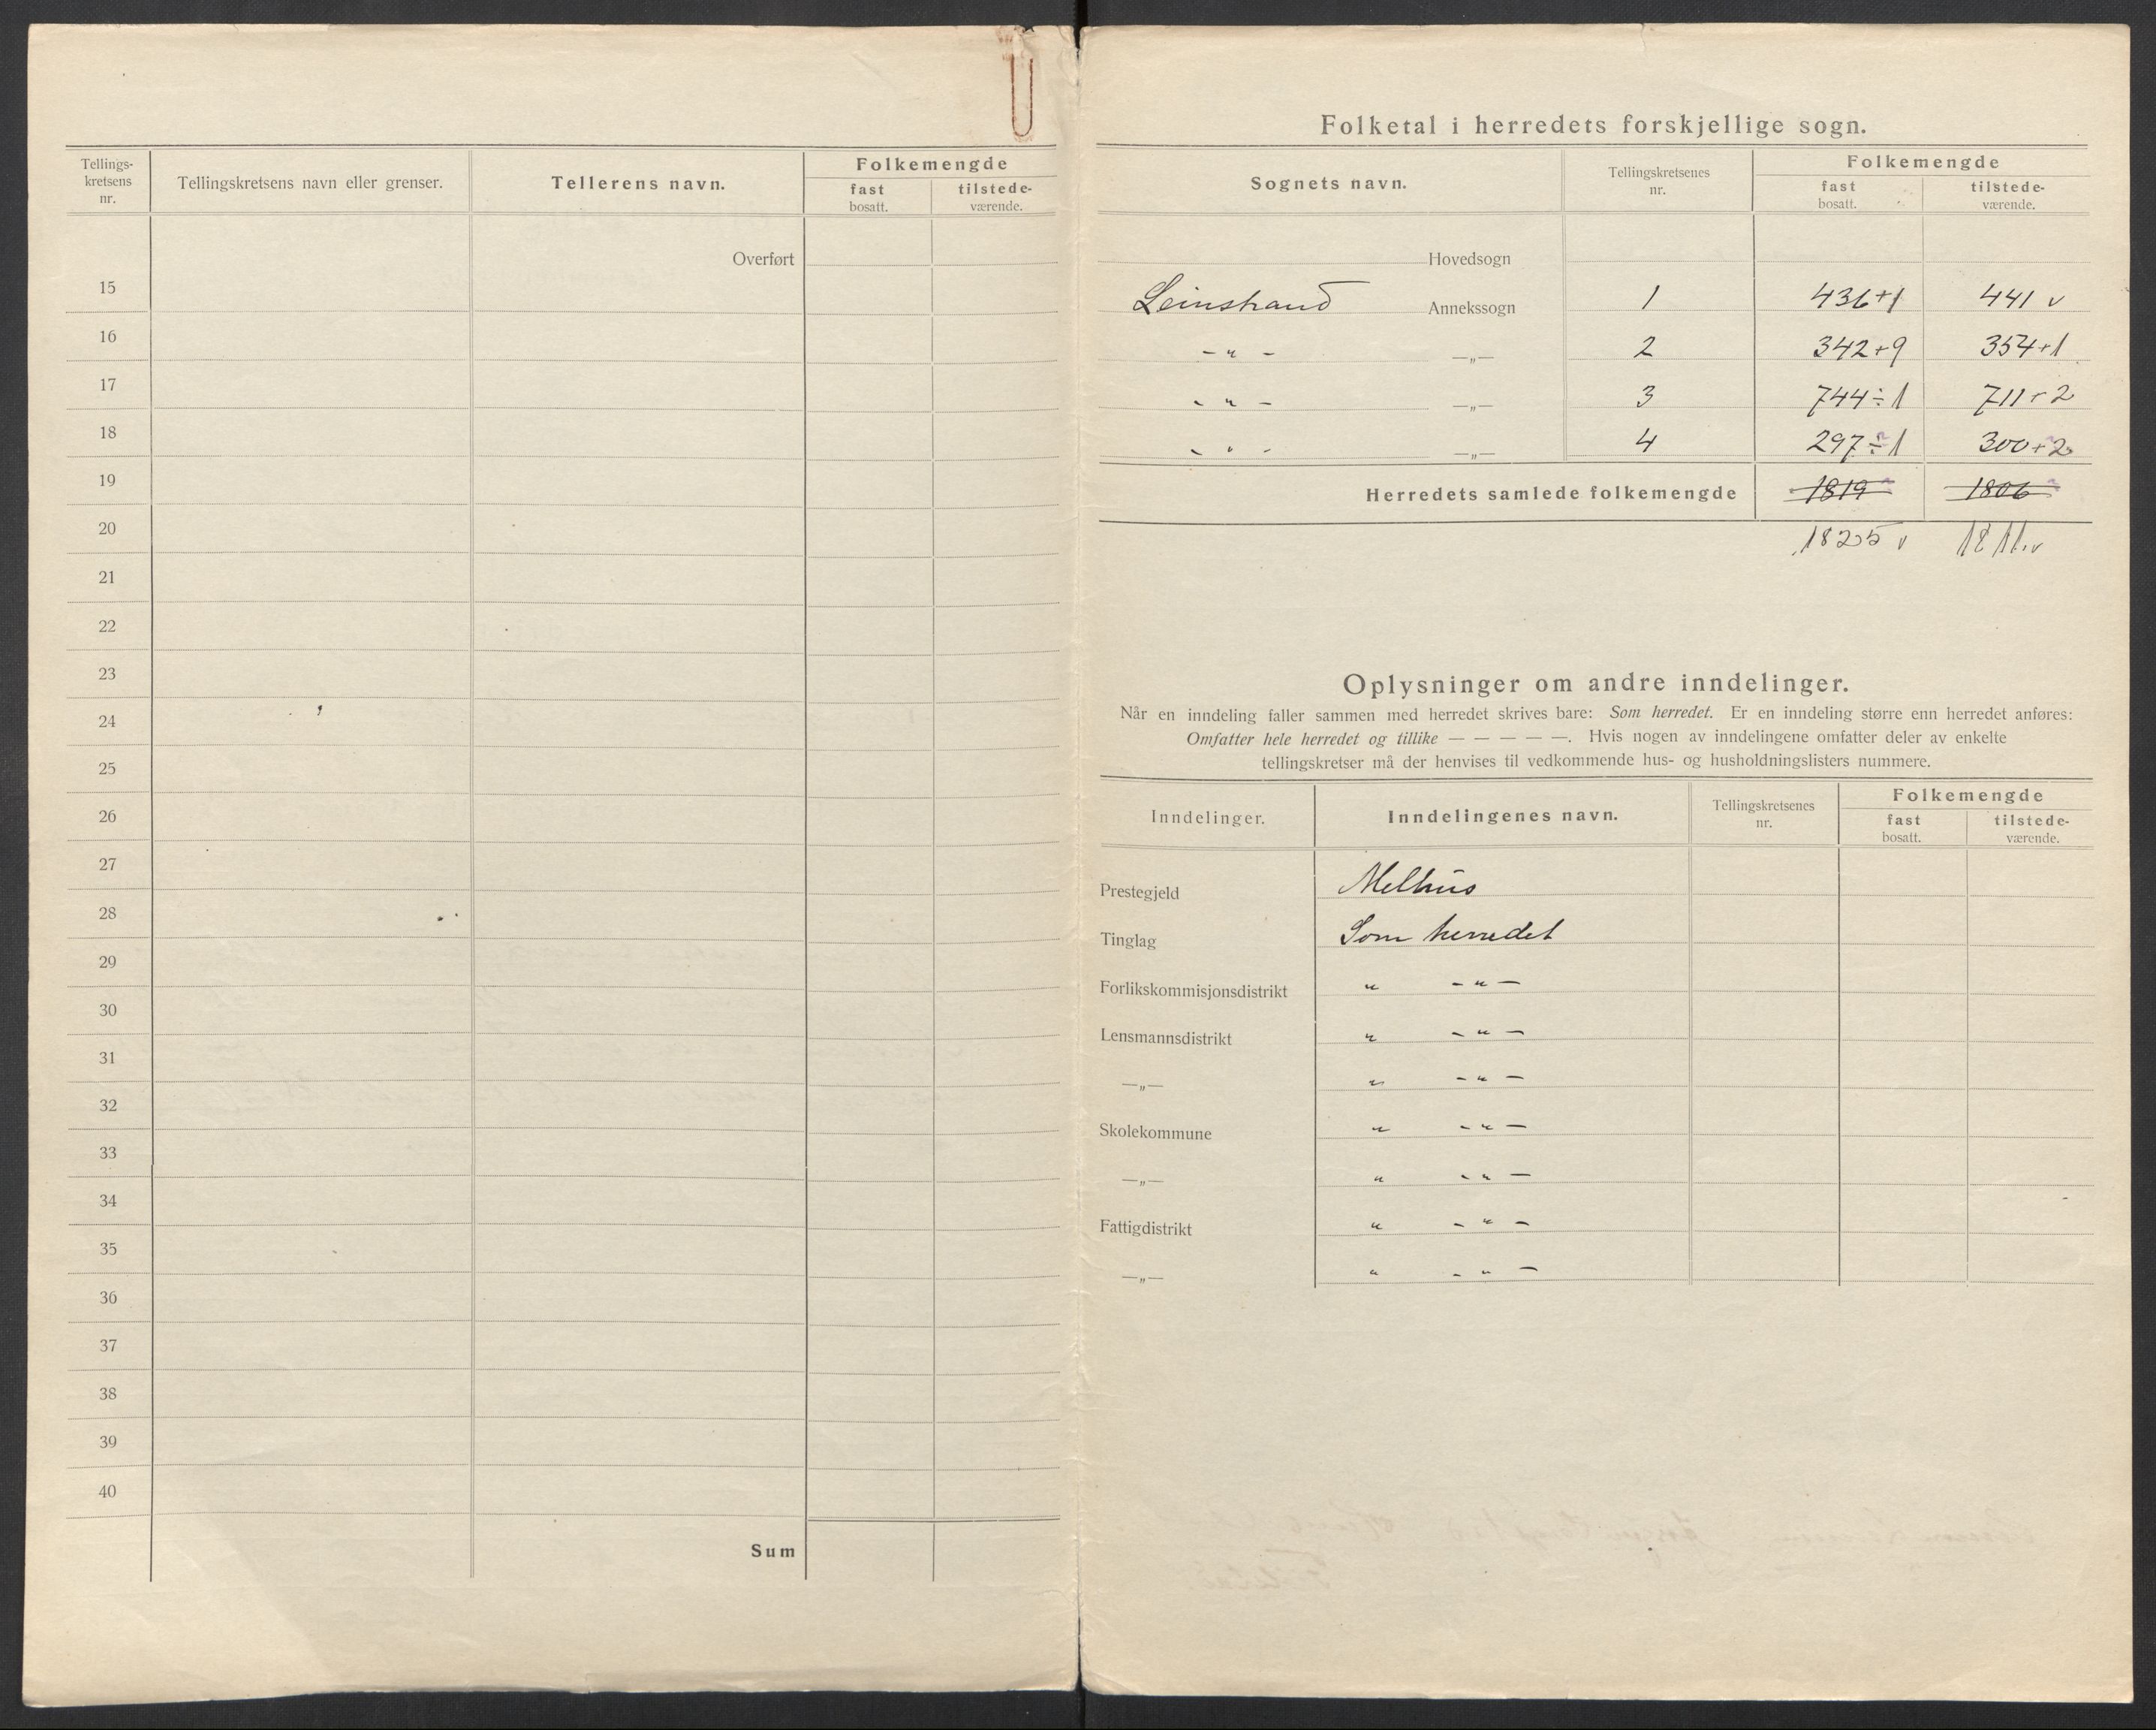 Tellings-
kretsens
nr.
Tellingskretsens navn eller grenser.
Tellerens navn.
Folkemengde
fast
bosatt.
tilstede-
værende.
Overført
15
16
17
18
19
20
21
22
23
24
25
26
27
28
29
30
31
32
33
34
35
36
37
38
39
40
Sum
Folketal i herredets forskjellige sogn.
Sognets navn.
Tellingskretsenes
nr.
Folkemengde
fast
bosatt.
tilstede-
værende.
Hovedsogn
Leinstrand Annekssogn 1 436+1 441 v
-"- —„— 2 342+9 354+1
-"- —„— 3 744÷1 711+2
-"- —„— 4 297÷1 300+2
Herredets samlede folkemengde 1819 1806
1825 v 1811. v
Oplysninger om andre inndelinger.
Når en inndeling faller sammen med herredet skrives bare: Som herredet. Er en inndeling større enn herredet anføres:
Omfatter hele herredet og tillike — — — — —. Hvis nogen av inndelingene omfatter deler av enkelte
tellingskretser må der henvises til vedkommende hus- og husholdningslisters nummere.
Inndelinger.
Inndelingenes navn.
Tellingskretsenes
nr.
Folkemengde
fast
bosatt.
tilstede-
værende.
Prestegjeld Melhus
Tinglag Som herredet
Forlikskommisjonsdistrikt " -"-
Lensmannsdistrikt " -"-
—„— " -"-
Skolekommune " -"-
—„— " -"-
Fattigdistrikt " -"-
—„— " -"-